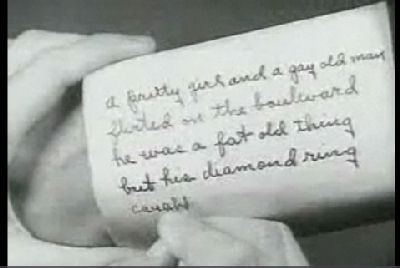 a pretty girl and a gay old man
flirted on the boulevard
he was a fat old thing
but his diamond ring
caught